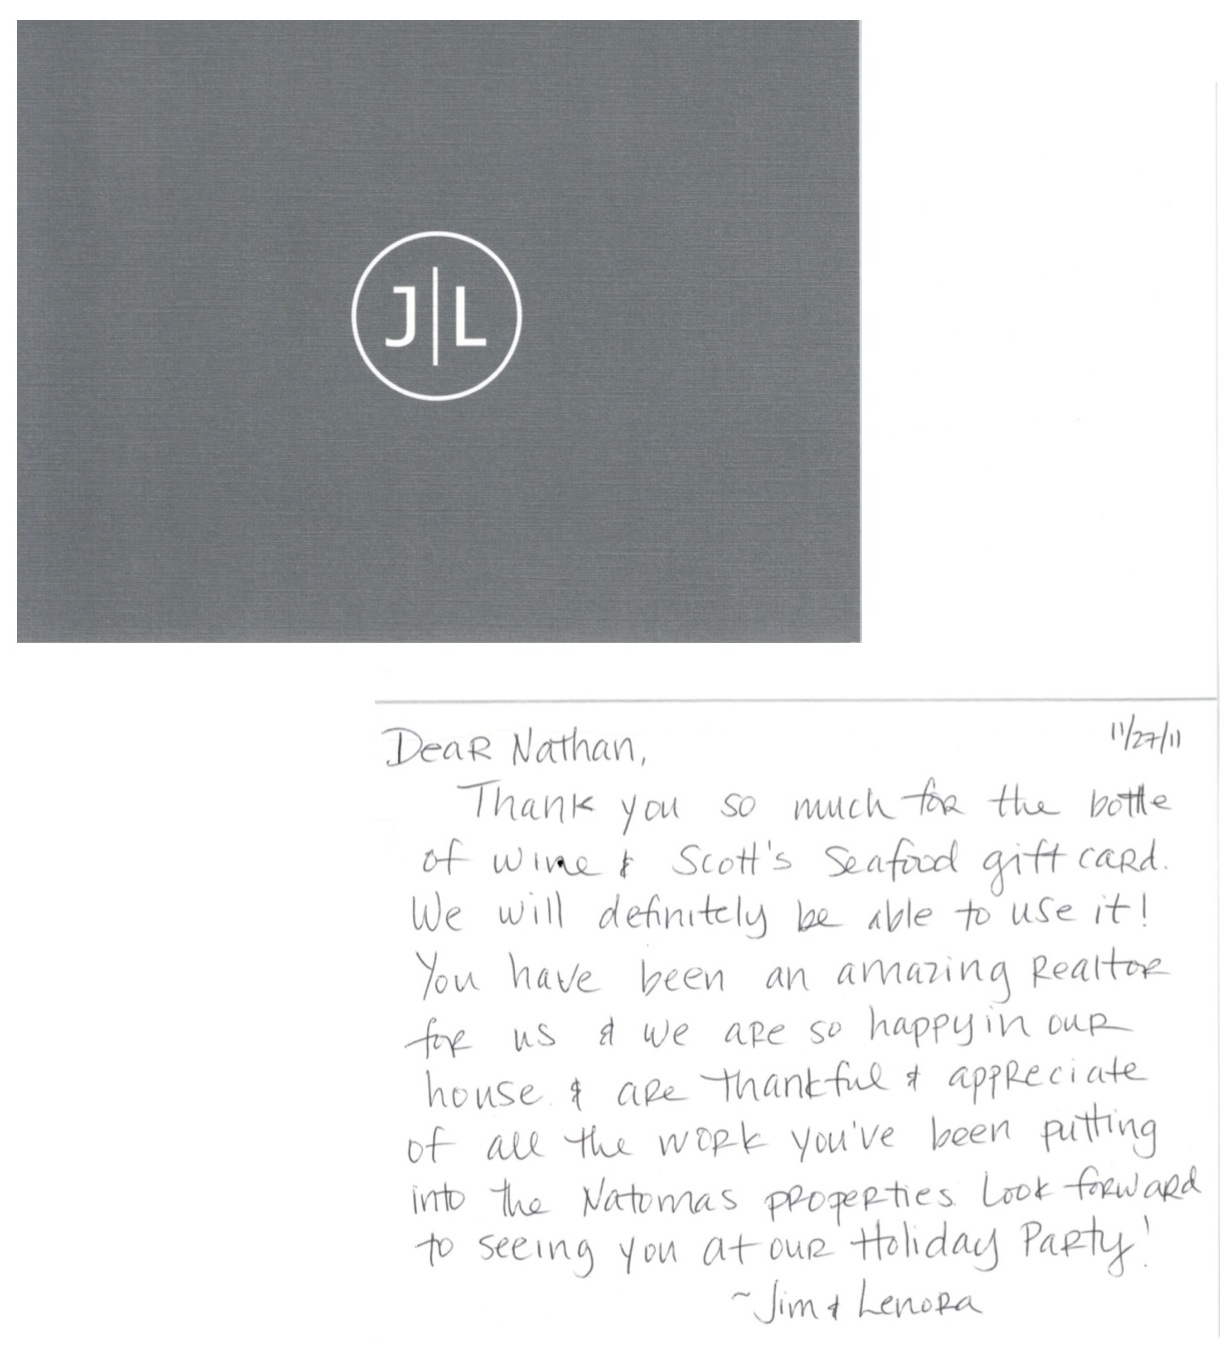 J|L
Dear Nathan,
11/27/11
Thank you so much for the bottle
of wine & Scott's Seafood gift card.
We will definitely be able to use it!
You have been an amazing Realtor
for us & we are so happy in our
house & are thankful & appreciate
of all the work you've been putting
into the Natomas properties. Look forward
to seeing you at our Holiday Party!
~Jim & Lenora